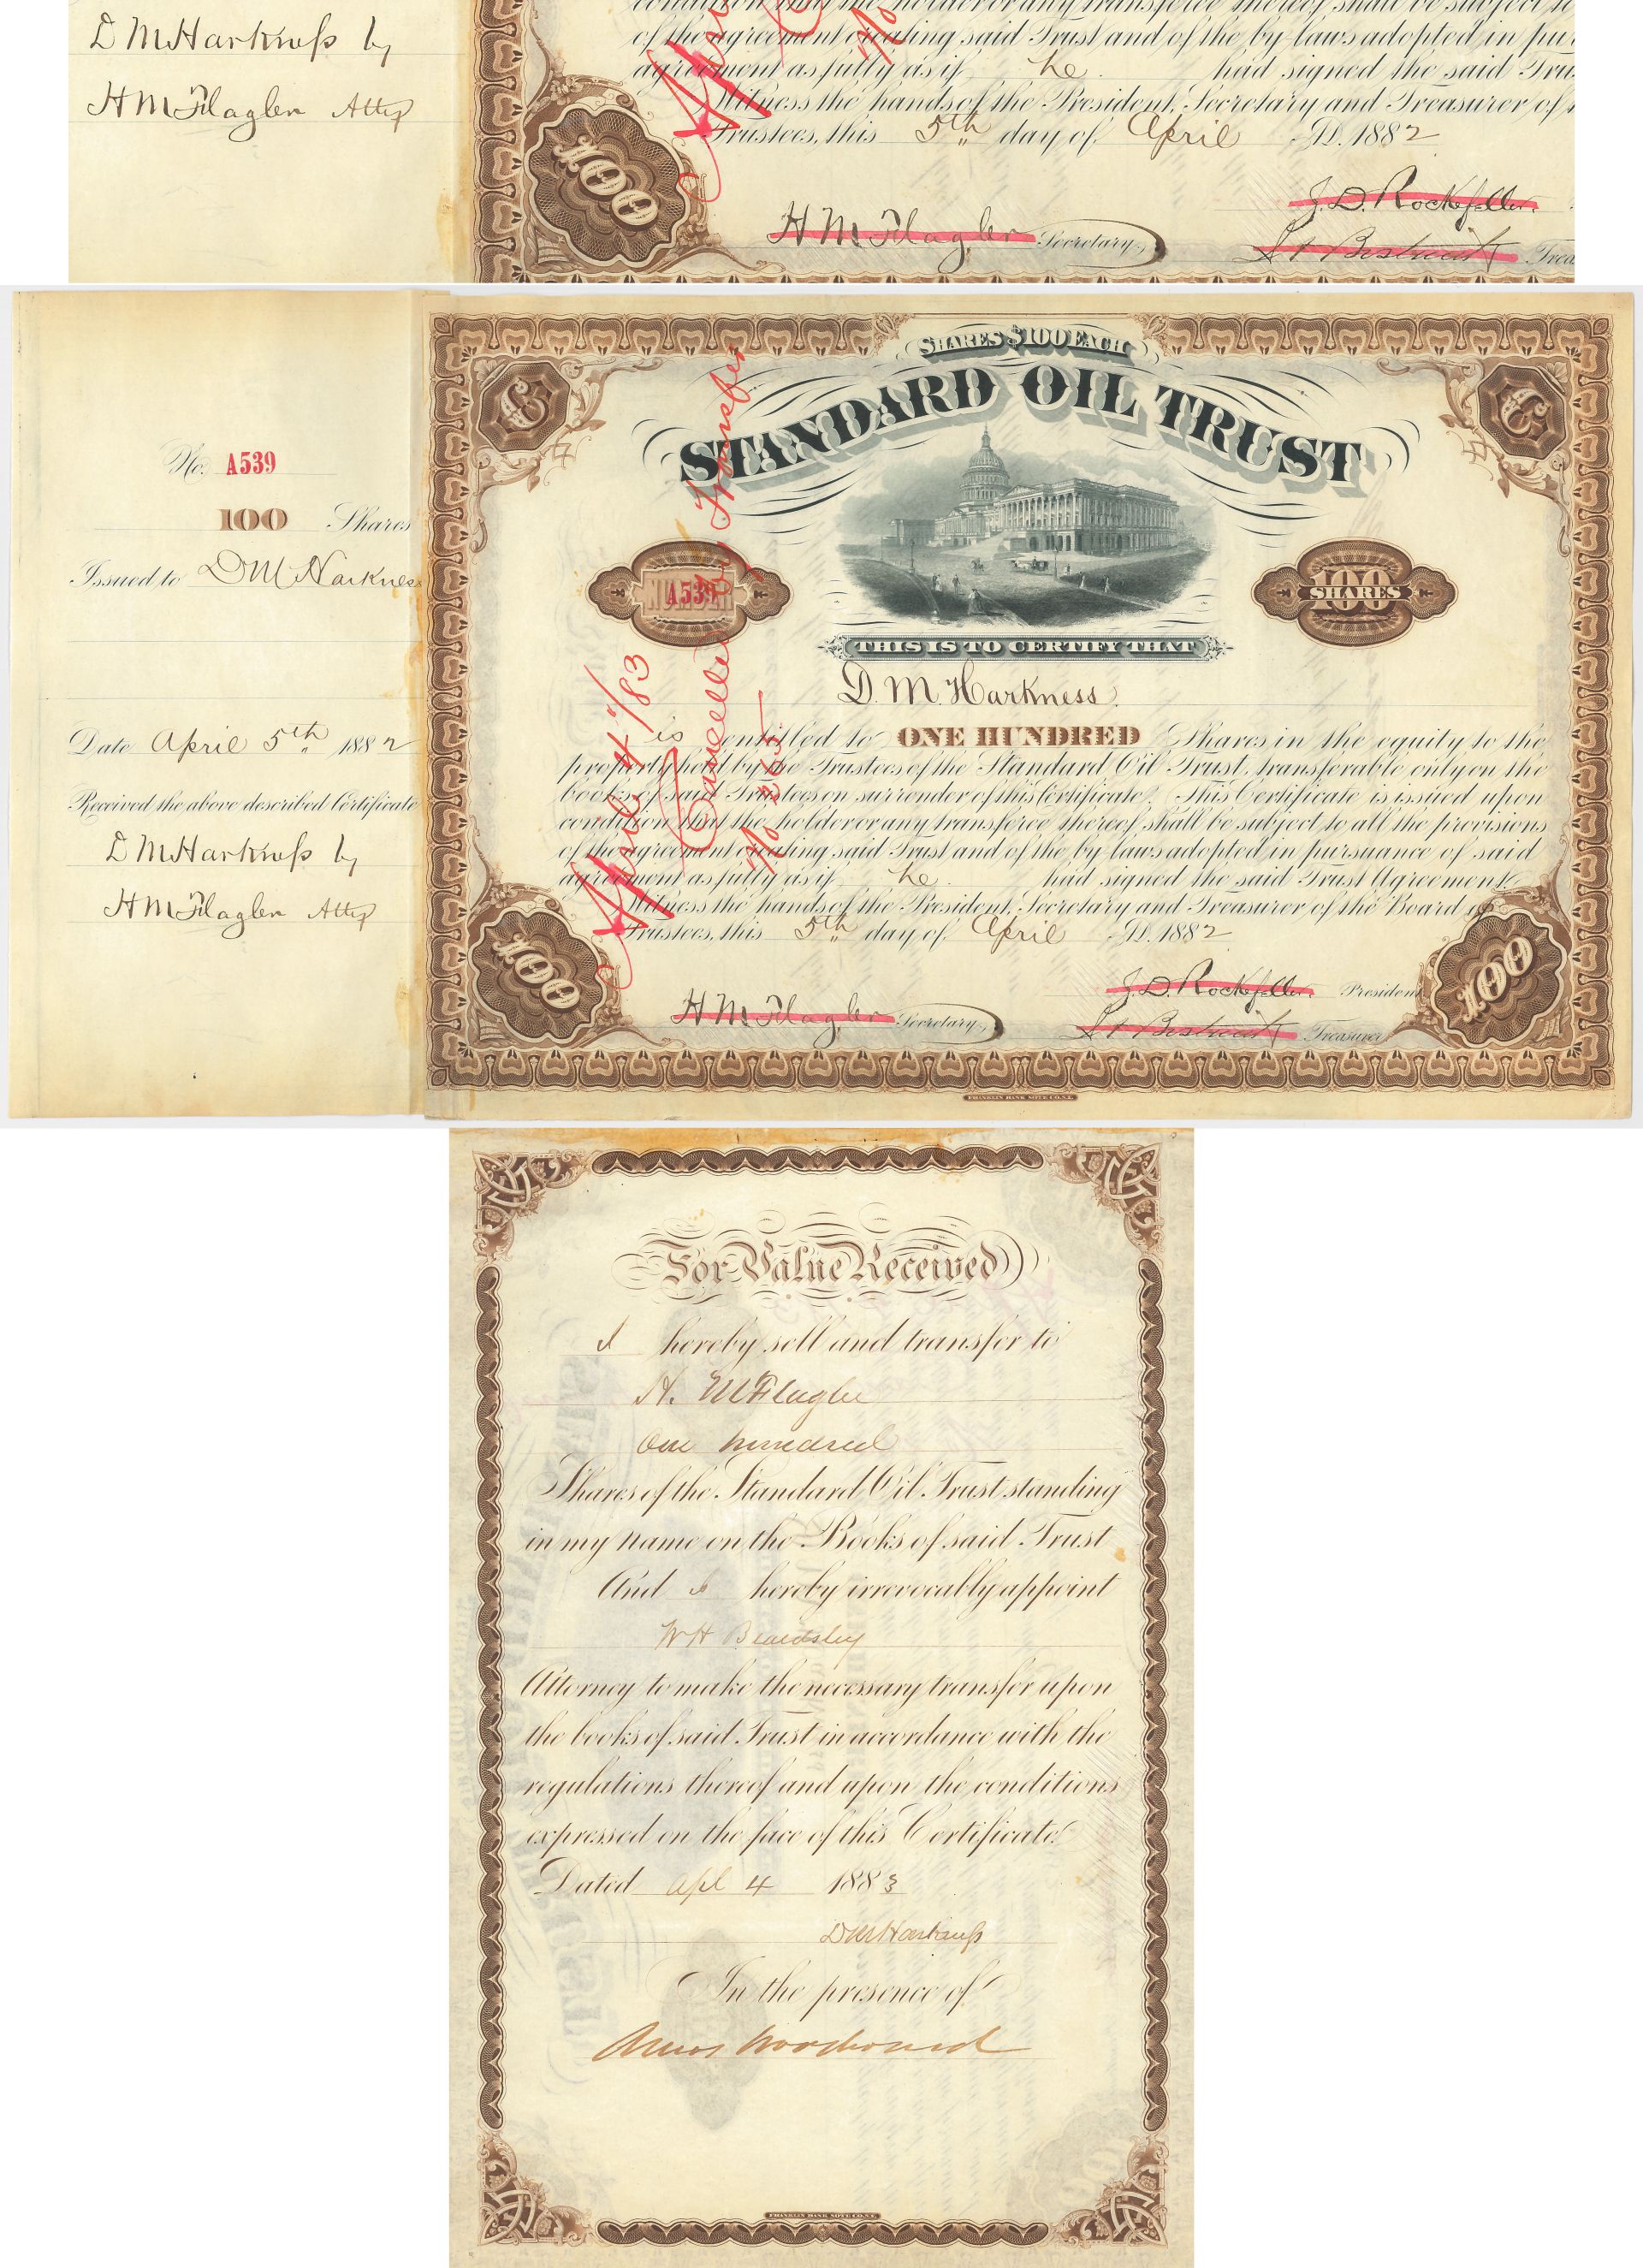 condition that the holder or any transferee thereof shall be subject to
of the agreement creating said Trust and of the by laws adopted in pur
agreement as fully as if he had signed the said Tru
Witness the hands of the President, Secretary and Treasurer of t
Trustees, this 5th day of April A.D. 1882
D M Harkness by
H M Flagler Atty
100
J. D. Rockefeller
H M Flagler Secretary
Trea
No. A539
100 Shares
Issued to D M Harknes
Date April 5th 1882
Received the above described Certificate
D M Harkness by
H M Flagler Atty
SHARES $100 EACH
STANDARD OIL TRUST
C
C
NUMBER
A539
100
SHARES
THIS IS TO CERTIFY THAT
D. M. Harkness
is entitled to ONE HUNDRED Shares in the equity to the
property held by the Trustees of the Standard Oil Trust, transferable only on the
books of said Trustees on surrender of this Certificate. This Certificate is issued upon
condition that the holder or any transferee thereof shall be subject to all the provisions
of the agreement creating said Trust and of the by laws adopted in pursuance of said
agreement as fully as if he had signed the said Trust Agreement.
Witness the hands of the President, Secretary and Treasurer of the Board of
Trustees, this 5th day of April A.D. 1882
April 4"/83
Cancelled by Transfer
No
100
100
J. D. Rockefeller President
H M Flagler Secretary
Treasurer
FRANKLIN BANK NOTE CO. N.Y.
For Value Received
I hereby sell and transfer to
H. M Flagler
One hundred
Shares of the Standard Oil Trust standing
in my name on the Books of said Trust
And I hereby irrevocably appoint
W H Beardsley
Attorney to make the necessary transfer upon
the books of said Trust in accordance with the
regulations thereof and upon the conditions
expressed on the face of this Certificate.
Dated Apl 4 1883
D M Harkness
In the presence of
Amos Woodward
FRANKLIN BANK NOTE CO. N.Y.